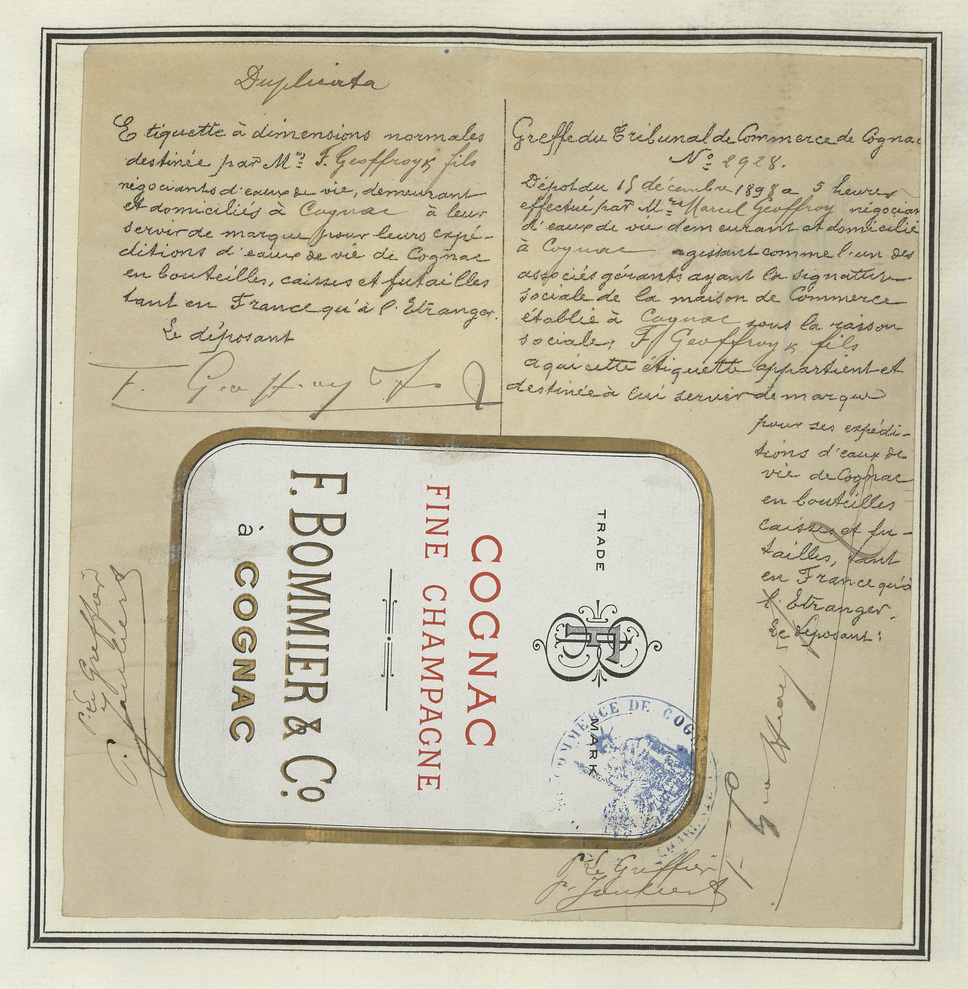 Duplicata
Etiquette à dimensions normales
destinée par Mrs F. Geoffroy & fils
négociants d'eaux de vie, demeurant
et domiciliés à Cognac à leur
servir de marque pour leurs expé-
ditions d'eaux de vie de Cognac
en bouteilles, caisses et futailles
tant en France qu'à l'Etranger.
Le déposant
F. Geoffroy & fs
Greffe du Tribunal de Commerce de Cognac
No 2928.
Dépot du 15 décembre 1898 a 5 heures
effectué par Mr Marcel Geoffroy négociant
d'eaux de vie demeurant et domicilié
à Cognac agissant comme l'un des
associés gérants ayant la signature
sociale de la maison de Commerce
établie à Cognac sous la raison
sociale: F. Geoffroy & fils
a qui cette étiquette appartient et
destinée à lui servir de marque
pour ses expédi-
tions d'eaux de
vie de Cognac
en bouteilles
caisses et fu-
tailles, tant
en France qu'à
l'Etranger.
Le déposant:
F. Geoffroy & fs
TRADE
MARK
COGNAC
FINE CHAMPAGNE
F. BOMMIER & Co.
à COGNAC
COMMERCE DE COGNAC
P. Le Greffier
P. Le Greffier